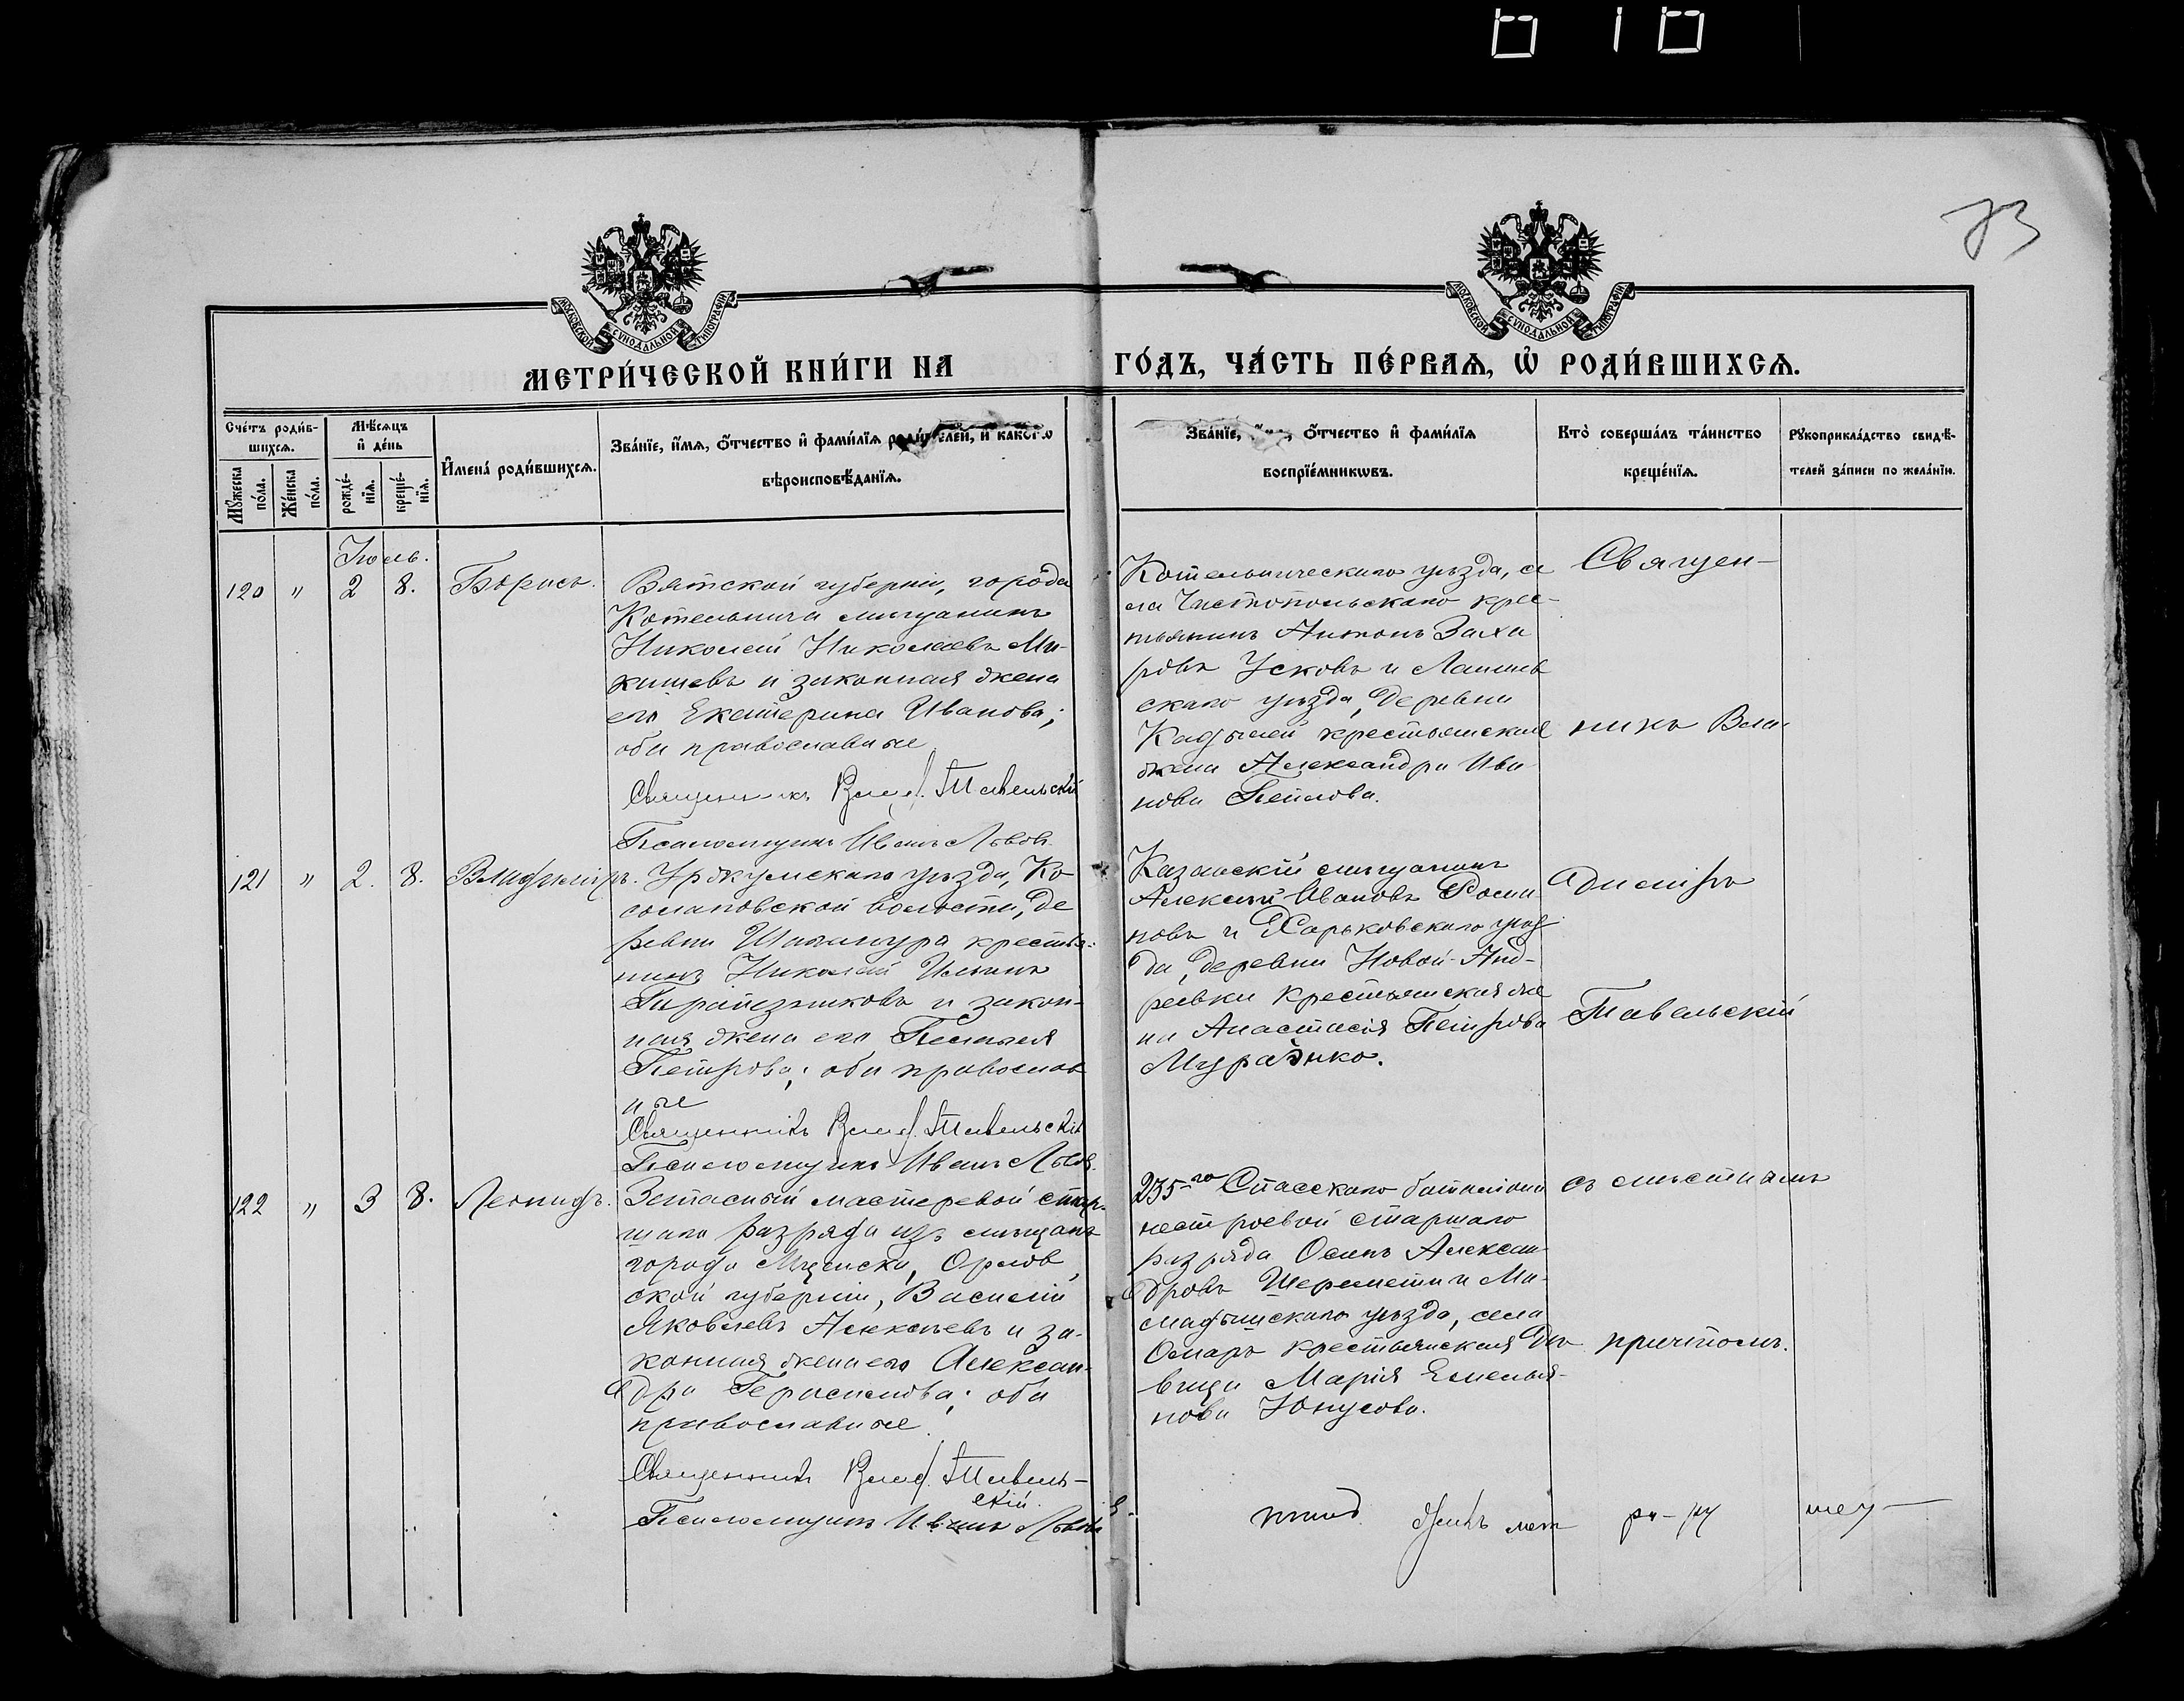 73
МОСКОВСКОЙ СѴНОДАЛЬНОЙ ТИПОГРАФІИ
МОСКОВСКОЙ СѴНОДАЛЬНОЙ ТИПОГРАФІИ
МЕТРИ́ЧЕСКОЙ КНИ́ГИ НА ГО́ДЪ, ЧА́СТЬ ПЕ́РВАѦ, Ѡ҆ РОДИ́ВШИХСѦ.
Сче́тъ роди́в-
шихсѧ.
Мꙋ́жеска по́ла.
Же́нска по́ла.
Мѣ́сѧцъ
и҆ де́нь
рожде́-
нїѧ.
креще́-
нїѧ.
И҆мена̀ роди́вшихсѧ.
Зва́нїе, и҆́мѧ, ѻ҆́тчество и҆ фамı́лїѧ роди́телей, и҆ како́гѡ
вѣроисповѣ́данїѧ.
Зва́нїе, ѻ҆́тчество и҆ фамı́лїѧ
воспрїе́мникѡвъ.
Кто̀ соверша́лъ та́инство
креще́нїѧ.
Рꙋкоприкла́дство свидѣ́-
телей за́писи по жела́нїю.
Іюль.
120 " 2 8. Борисъ.
Вятской губерніи, города
Котельнича мѣщанинъ
Николай Николаевъ Ми-
кишевъ и законная жена
его Екатерина Иванова;
оба православные
Священникъ Влад. Тавельскій
Псаломщикъ Иванъ Львовъ.
Котельническаго уѣзда, се
ла Чистопольскаго крес-
тьянинъ Антонъ Заха
ровъ Усковъ и Лаишев
скаго уѣзда, деревни
Кадылей крестьянская
жена Александра Ива
нова
121 " 2. 8. Владиміръ.
Уржумскаго уѣзда, Ко
солаповской волости, де
ревни крестья-
нинъ Николай Ильинъ
и закон-
ная жена его Пелагея
Петрова; оба православ
ные
Священникъ Влад. Тавельскій
Псаломщикъ Иванъ Львовъ.
Казанскій мѣщанинъ
Алексѣй Ивановъ Рома
новъ и Харьковскаго уѣз
да, деревни Новой-Анд-
реевки крестьянская же
на Анастасія Петрова
122 " 3 8. Леонидъ.
Запасный мастеровой стар-
шаго разряда изъ мѣщанъ
города Мценска, Орлов
ской губерніи, Василій
Яковлевъ Алексѣевъ и за-
конная жена его Алексан-
дра Герасимова; оба
православные.
Священникъ Влад. Тавель-
скій.
Псаломщикъ Иванъ Львовъ
235-го Спасскаго баталіона
нестроевой старшаго
разряда Осипъ Алексан-
дровъ и Ма-
мадышскаго уѣзда, села
Омаръ крестьянская дѣ
вица Марія Емелья-
нова Юнусова.
Священ-
никъ Вла-
диміръ
Тавельскій
съ мѣстнымъ
причтомъ.